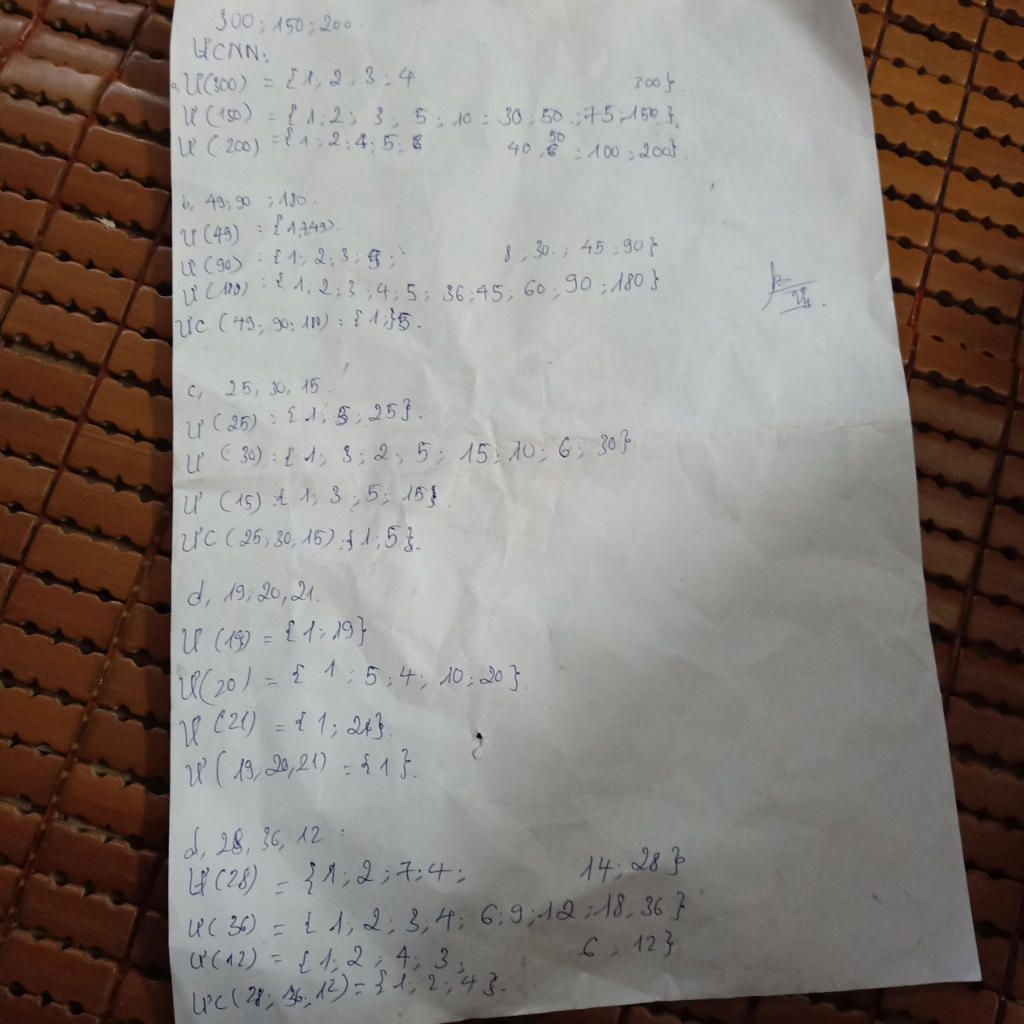 300; 150; 200
ƯCNN:
a, Ư(300) = {1, 2; 3; 4 300}
Ư(150) = {1; 2; 3; 5; 10; 30; 50; 75; 150}
Ư(200) = {1; 2; 4; 5; 40; 50; 100; 200}
b, 49; 90; 180.
Ư(49) : {1,7,49}
Ư(90) : {1; 2; 3; 5; 30; 45; 90}
Ư(180) : {1; 2; 3; 4; 5; 36; 45; 60; 90; 180}
ƯC(49; 90; 180) : {1;}
c, 25, 30, 15.
Ư(25) : {1; 5; 25}.
Ư(30) : {1; 3; 2; 5; 15; 10; 6; 30}.
Ư(15) : {1; 3; 5; 15}.
ƯC(25; 30; 15) : {1; 5}.
d, 19; 20, 21.
Ư(19) = {1; 19}
Ư(20) = {1; 5; 4; 10; 20}.
Ư(21) = {1; 21}.
Ư(19, 20, 21) = {1}.
d, 28, 36, 12:
Ư(28) = {1; 2; 7; 4; 14; 28}
Ư(36) = {1; 2; 3; 4; 6; 9; 12; 18; 36}
Ư(12) = {1; 2; 4; 3; 6; 12}
ƯC(28; 36; 12) = {1; 2; 4}.